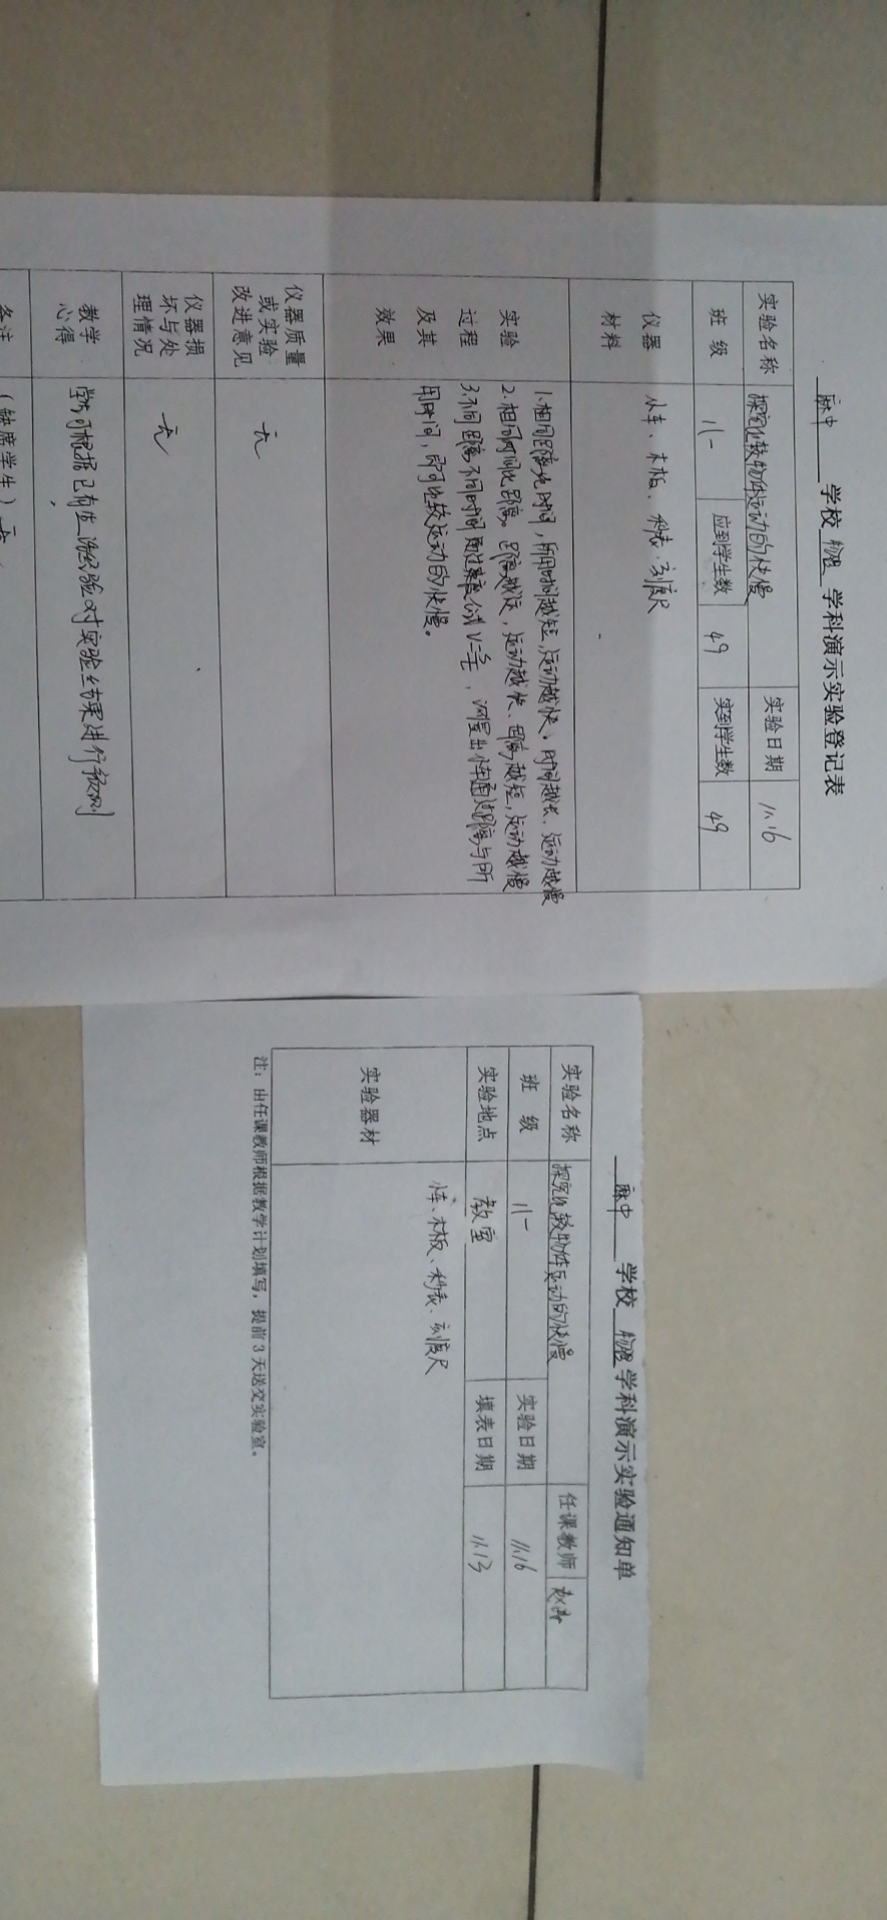 麻中 学校 物理 学科演示实验登记表
实验名称 探究比较物体运动的快慢 实验日期 11.16
班 级 八一 应到学生数 49 实到学生数 49
仪器
材料
小车、木板、秒表、刻度尺
实验
过程
及其
效果
1.相同距离比时间，所用时间越短，运动越快。时间越长，运动越慢
2.相同时间比距离。距离越远，运动越快、距离越短，运动越慢
3.不同距离不同时间通过速度公式V=S/t，测量出小车通过距离与所
用时间，即可比较运动的快慢。
仪器质量
或实验
改进意见
无
仪器损
坏与处
理情况
无
教学
心得
学生可根据已有生活经验对实验结果进行预测
备注 (缺席学生) 无
麻中 学校 物理 学科演示实验通知单
实验名称 探究比较物体运动的快慢 任课教师
班 级 八一 实验日期 11.16
实验地点 教室 填表日期 11.13
实验器材 小车、木板、秒表、刻度尺
注：由任课教师根据教学计划填写，提前3天送交实验室。